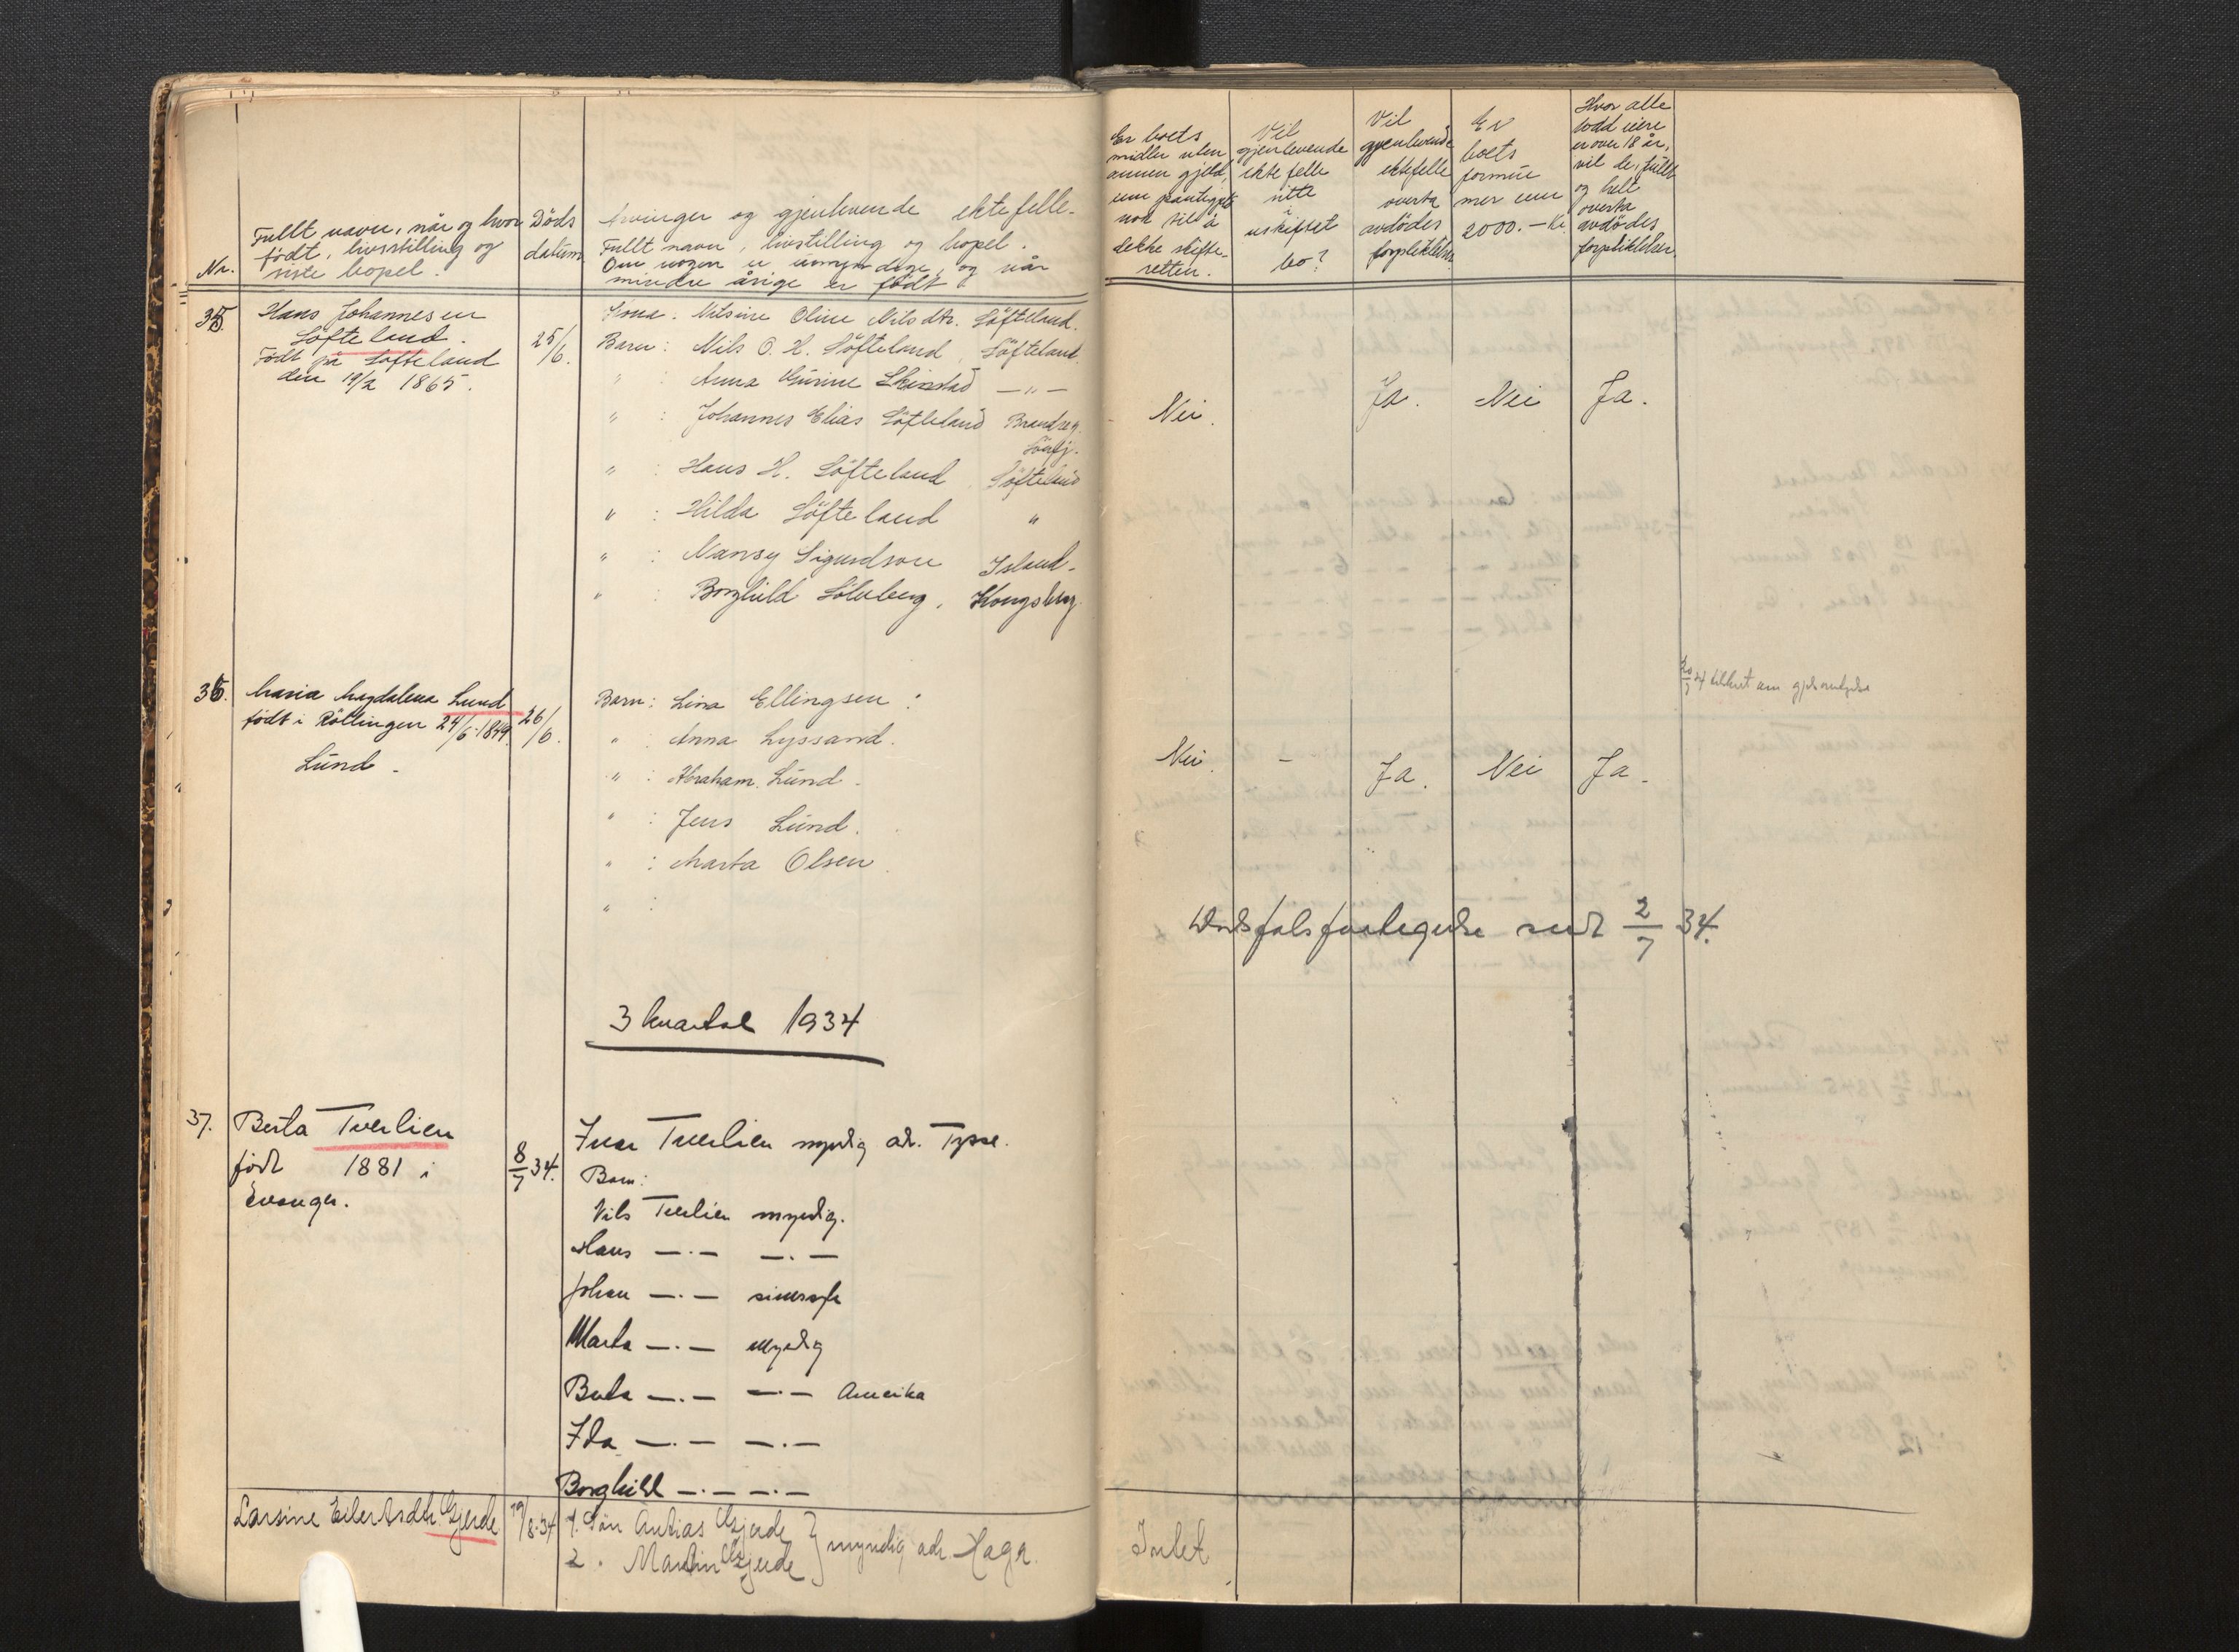 Nr.
Fullt navn, når og hvor
født, livsstilling og
siste bopel.
Döds
datum
Arvinger og gjenlevende ektefelle.
Fullt navn, livstilling og bopel.
Om nogen er umyndige, og når
mindre årige er født
Er boets
midler uten
annen gjeld,
enn
nok til å
dekke skifte-
retten.
Vil
gjenlevende
ektefelle
sitte
i
uskiftet
bo?
Vil
gjenlevende
ektefelle
overta
avdödes
forpliktelser
Er
boets
formue
mer enn
2000.— Kr.
Hvor alle
lodd eiere
er over 18 år,
vil de, fullt
og helt
overta
avdödes
forpliktelser.
35.
Hans Johannesen
Löfteland.
Födt på Löfteland
den 19/2 1865.
25/6.
Kona. Nilsine Oline Nilsdtr. Löfteland.
Barn: Nils O. H. Löfteland, Löfteland
" : Anna Gurine Skinstad —"—
" : Johannes Elias Löfteland
" : Hans H. Löfteland, Löfteland
" : Hilda Löfteland "
" : Nansy Sigurdson Island.
" : Borghild Sölvberg, Kongsberg.
Nei.
Ja.
Nei
Ja.
36.
Maria Magdalena Lund
født i Röttingen 24/6-1849.
Lund.
26/6.
Barn: Lina Ellingsen.
" : Anna Lyssand.
" : Abraham Lund.
" : Jens Lund.
" : Marta Olsen.
" :
Nei.
-
Ja.
Nei
Ja.
Dødsfalsfortegnelse sendt 2/7 34.
3 kvartal 1934
37.
Berta Tverlien
født 1881 i
Evanger.
8/7 34.
Ivar Tverlien myndig adr. Tysse.
Barn:
Nils Tverlien myndig.
Hans —.— —.—
Johan —.—
Marta —.— myndig
Berta —.— —.— Amerika
Ida —.— —.—
Borghild —.— —.—
Larsine Eilertsdtr. Gjerde
19/8-34
1. Sön Antias Gjerde
2. Martin Gjerde
myndig adr. Haga.
Intet